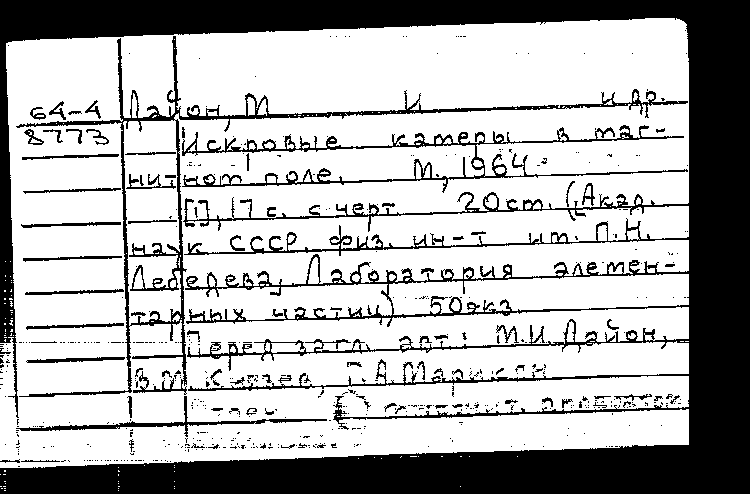 64-4 Дайон, М И и др.
8773 Искровые камеры в маг-
нитном поле. М., 1964.
[1], 17 с. с черт. 20см. (Акад.
наук СССР. Физ. ин-т им. П.Н.
Лебедева, Лаборатория элемен-
тарных частиц) 50экз.
Перед загл. авт.: М.И.Дайон,
В.М. Князев, Г.А.Марикян